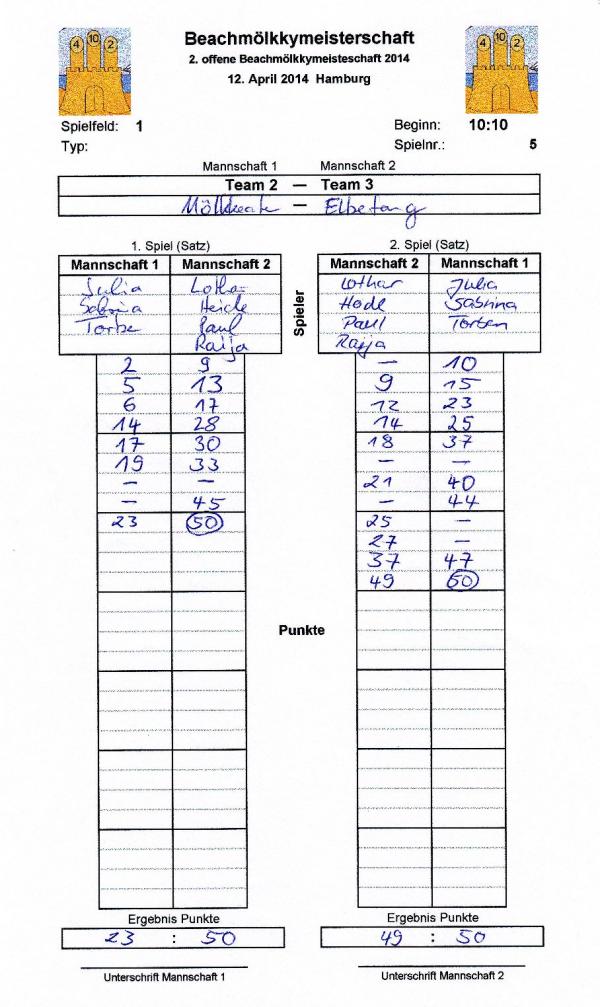 4 10 2
Beachmölkkymeisterschaft
2. offene Beachmölkkymeisteschaft 2014
12. April 2014 Hamburg
4 10 2
Spielfeld: 1 Beginn: 10:10
Typ: Spielnr.: 5
Mannschaft 1 Mannschaft 2
Team 2 — Team 3
— Elbefang
1. Spiel (Satz) 2. Spiel (Satz)
Mannschaft 1 Mannschaft 2 Mannschaft 2 Mannschaft 1
Julia Lothar Julia
Sabrina Heide Sabrina
Paul Spieler Paul Torben
Raija Raija
2 9 — 10
5 13 9 15
6 17 12 23
14 28 14 25
17 30 18 37
19 33 — —
— — 21 40
— 45 — 44
23 50 25 —
27 —
37 47
49 50
Punkte
Ergebnis Punkte Ergebnis Punkte
23 : 50 49 : 50
Unterschrift Mannschaft 1 Unterschrift Mannschaft 2